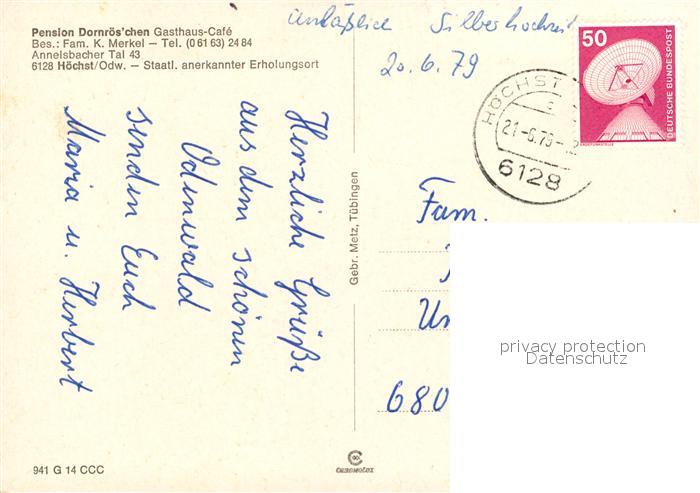 Pension Dornrös'chen Gasthaus-Café
Bes.: Fam. K. Merkel – Tel. (0 61 63) 24 84
Annelsbacher Tal 43
6128 Höchst/Odw. – Staatl. anerkannter Erholungsort
anläßlich Silberhochzeit
20.6.79
50
DEUTSCHE BUNDESPOST
ERDEFUNKSTELLE
HÖCHST
21-6.79-12
6128
Herzliche Grüße
aus dem schönen
Odenwald
senden Euch
Maria u. Herbert
Gebr. Metz, Tübingen
Fam.
Un
680
privacy protection
Datenschutz
941 G 14 CCC
CHROMOLUX